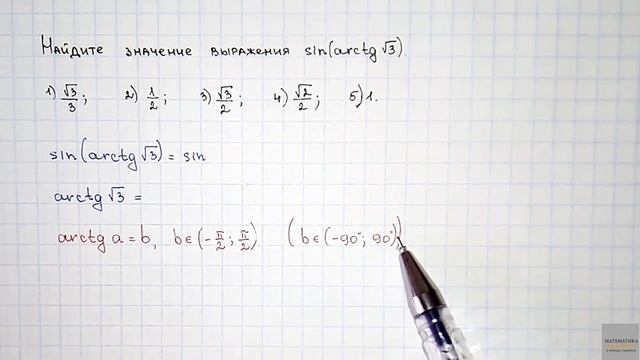 Найдите значение выражения sin(arctg √3)
1) √3/3; 2) 1/2; 3) √3/2; 4) √2/2; 5) 1.
sin(arctg √3) = sin
arctg √3 =
arctg a = b, b ∈ (-π/2; π/2) (b ∈ (-90°; 90°))
МАТЕМАТИКА